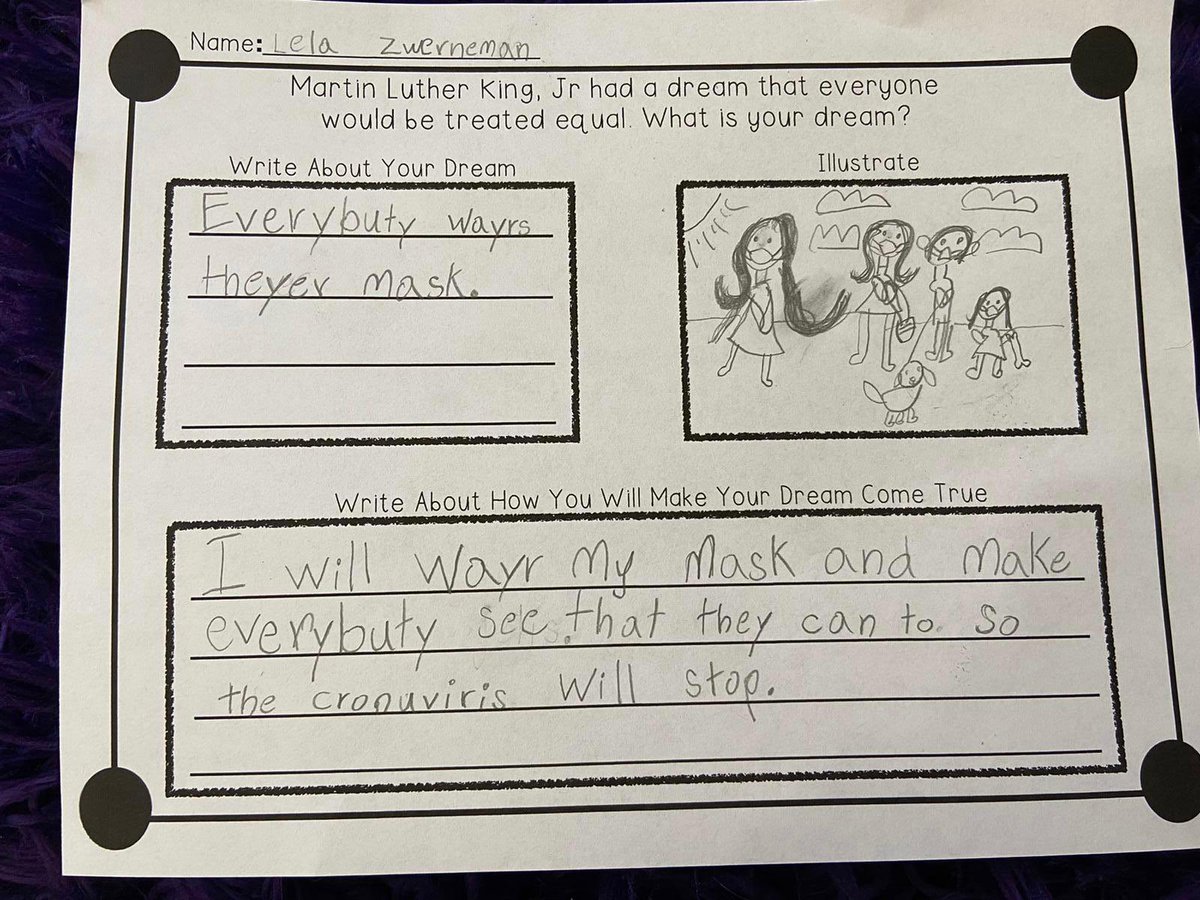 Name: Lela Zwerneman
Martin Luther King, Jr had a dream that everyone
would be treated equal. What is your dream?
Write About Your Dream
Everybuty wayrs
theyer mask.
Illustrate
Write About How You Will Make Your Dream Come True
I will wayr my mask and make
everybuty see that they can to so
the cronuviris will stop.